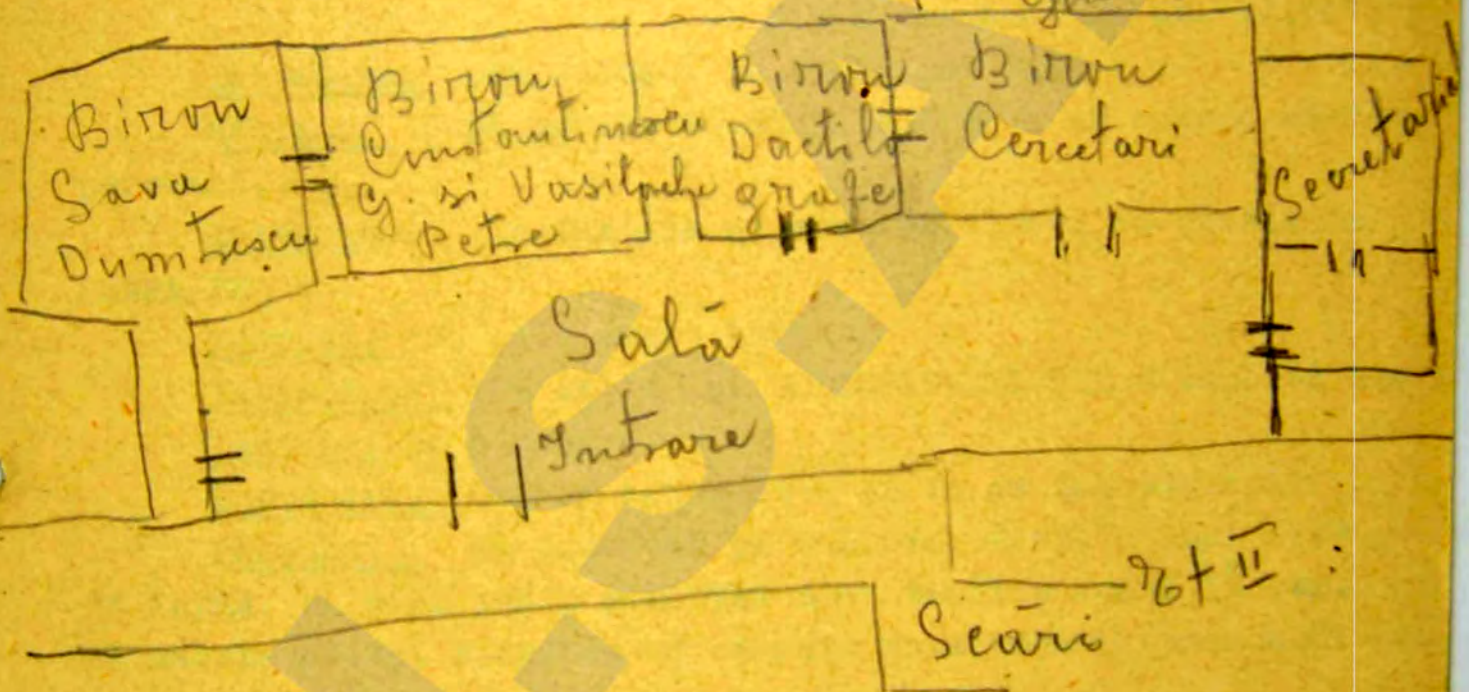 Birou
Sava
Dumitrescu
Birou
Constantinescu
G. si Vasilache
Petre
Birou
Dactilo
grafe
Birou
Cercetari
Secretariat
Sală
Intrare
et II :
Scări